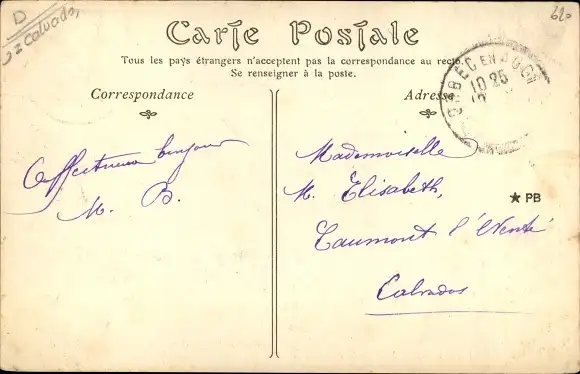 D
Calvados
620
Carte Postale
Tous les pays étrangers n'acceptent pas la correspondance au recto.
Se renseigner à la poste.
Correspondance
Adresse
ORBEC EN AUGE
10 25
Affectueux bonjour
M. B.
Mademoiselle
M. Élisabeth,
Caumont l'Éventé
Calvados
★ PB